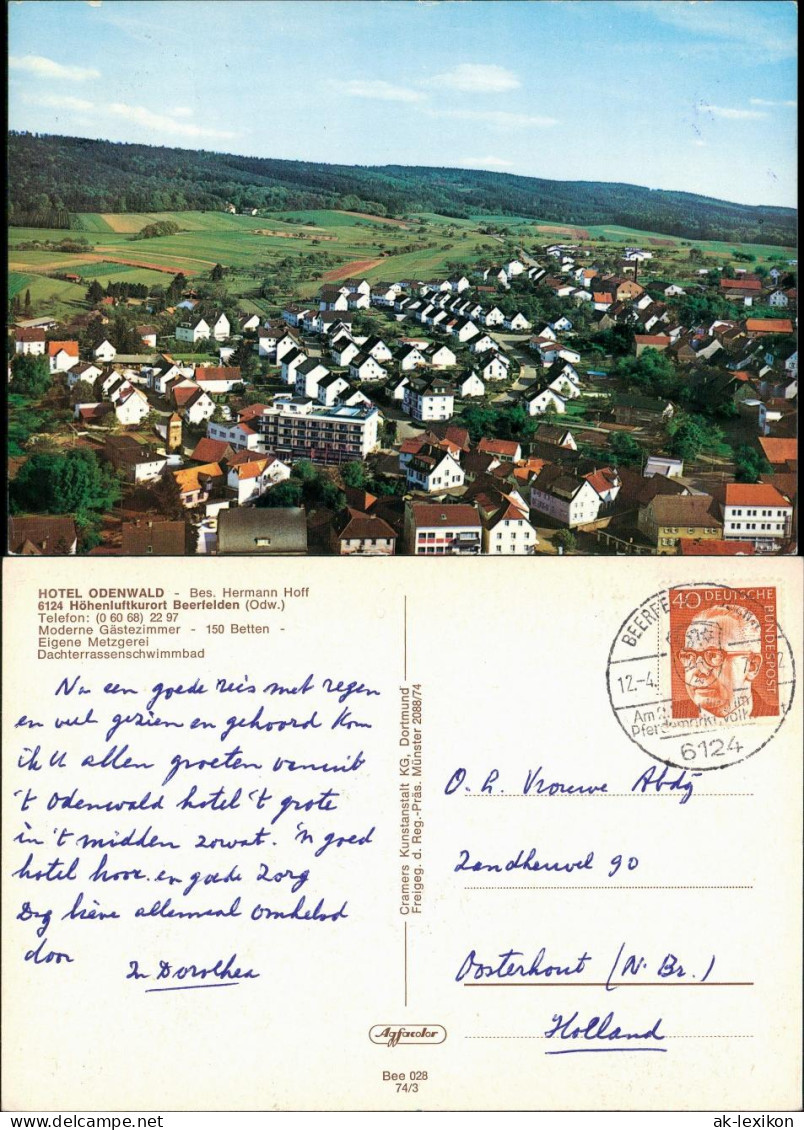 HOTEL ODENWALD - Bes. Hermann Hoff
6124 Höhenluftkurort Beerfelden (Odw.)
Telefon: (0 60 68) 22 97
Moderne Gästezimmer - 150 Betten -
Eigene Metzgerei
Dachterrassenschwimmbad
Na een goede reis met regen
en veel gezien en gehoord kom
ik U allen groeten vanuit
't Odenwald hotel 't grote
in 't midden zowat. 'n goed
hotel hoor. en goede zorg
Dag lieve allemaal omhelsd
door
Zr Dorothea
Cramers Kunstanstalt KG, Dortmund
Freigeg. d. Reg.-Präs. Münster 2088/74
Agfacolor
Bee 028
74/3
40 DEUTSCHE BUNDESPOST
12.-4.
Pferdemarkt
6124
O. L. Vrouwe Abdij
Zandheuvel 90
Oosterhout (N. Br.)
Holland
www.ansichtskarten-lexikon.de
ak-lexikon.com